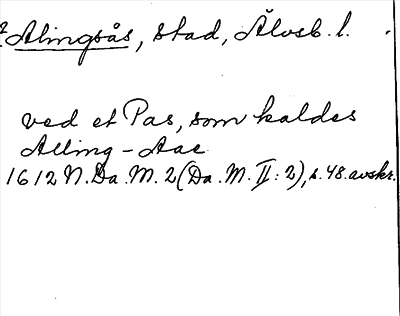 Alingsås, stad, Älvsb. l.
ved et Pas, som kaldes
Alling-Aae
1612 N. Da. M. 2 (Da. M. II: 2), s. 48. avskr.